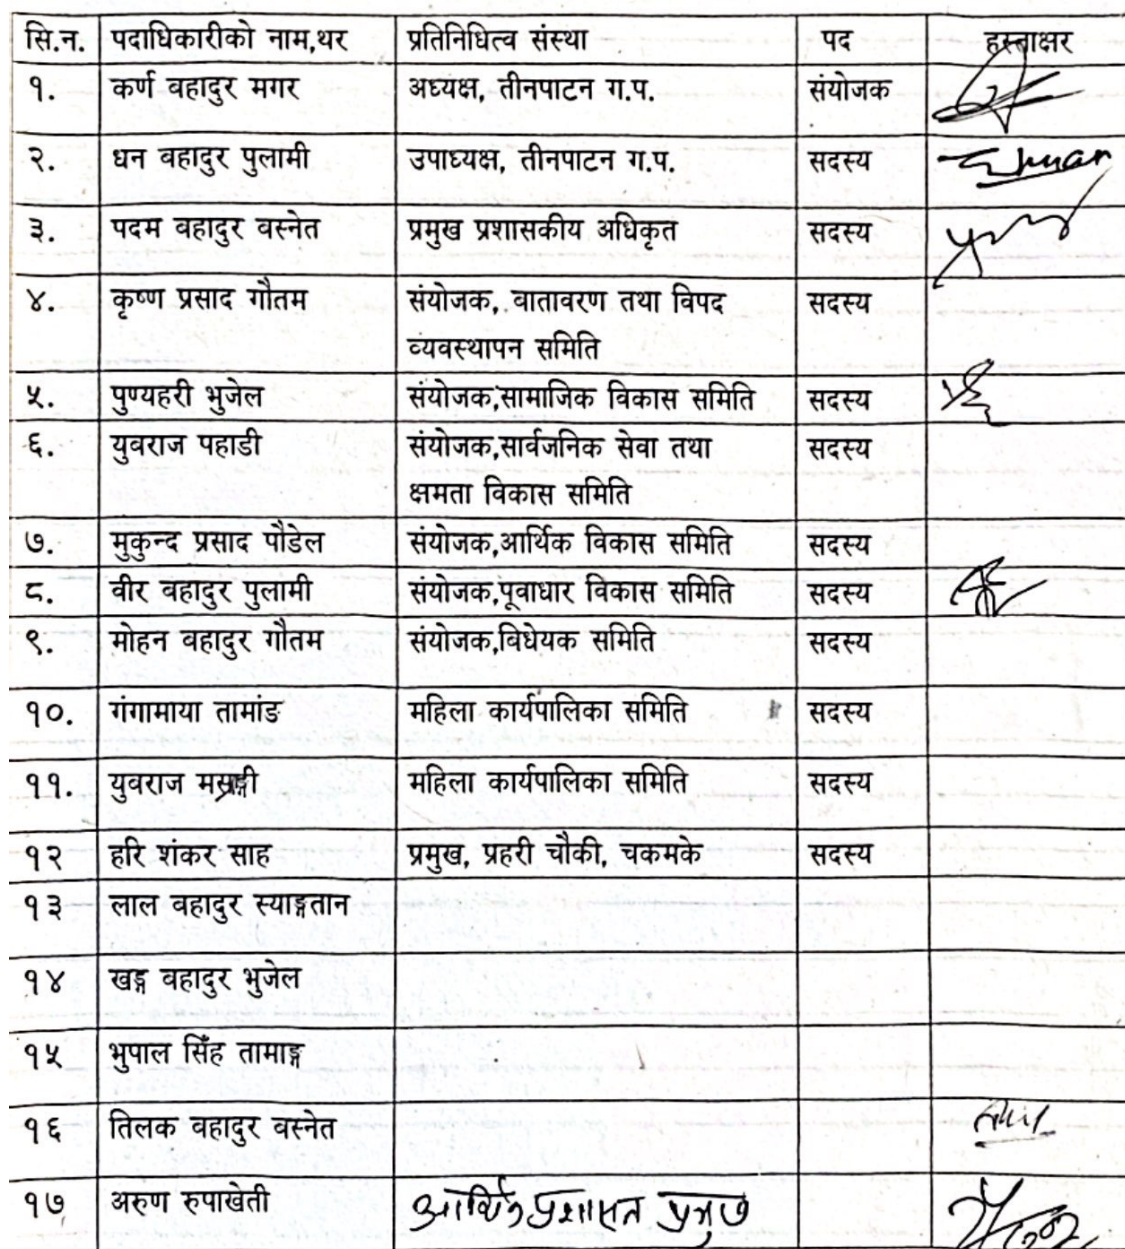 सि.न. पदाधिकारीको नाम,थर प्रतिनिधित्व संस्था पद हस्ताक्षर
१. कर्ण बहादुर मगर अध्यक्ष, तीनपाटन ग.प. संयोजक
२. धन बहादुर पुलामी उपाध्यक्ष, तीनपाटन ग.प. सदस्य
३. पदम बहादुर वस्नेत प्रमुख प्रशासकीय अधिकृत सदस्य
४. कृष्ण प्रसाद गौतम संयोजक, वातावरण तथा विपद सदस्य
व्यवस्थापन समिति
५. पुण्यहरी भुजेल संयोजक,सामाजिक विकास समिति सदस्य
६. युवराज पहाडी संयोजक,सार्वजनिक सेवा तथा सदस्य
क्षमता विकास समिति
७. मुकुन्द प्रसाद पौडेल संयोजक,आर्थिक विकास समिति सदस्य
८. वीर बहादुर पुलामी संयोजक,पूवाधार विकास समिति सदस्य
९. मोहन बहादुर गौतम संयोजक,बिधेयक समिति सदस्य
१०. गंगामाया तामांङ महिला कार्यपालिका समिति सदस्य
११. युवराज महिला कार्यपालिका समिति सदस्य
१२ हरि शंकर साह प्रमुख, प्रहरी चौकी, चकमके सदस्य
१३ लाल बहादुर स्याङ्गतान
१४ खड्ग बहादुर भुजेल
१५ भुपाल सिँह तामाङ्ग
१६ तिलक बहादुर वस्नेत
१७ अरुण रुपाखेती आर्थिक प्रशासन प्रमुख